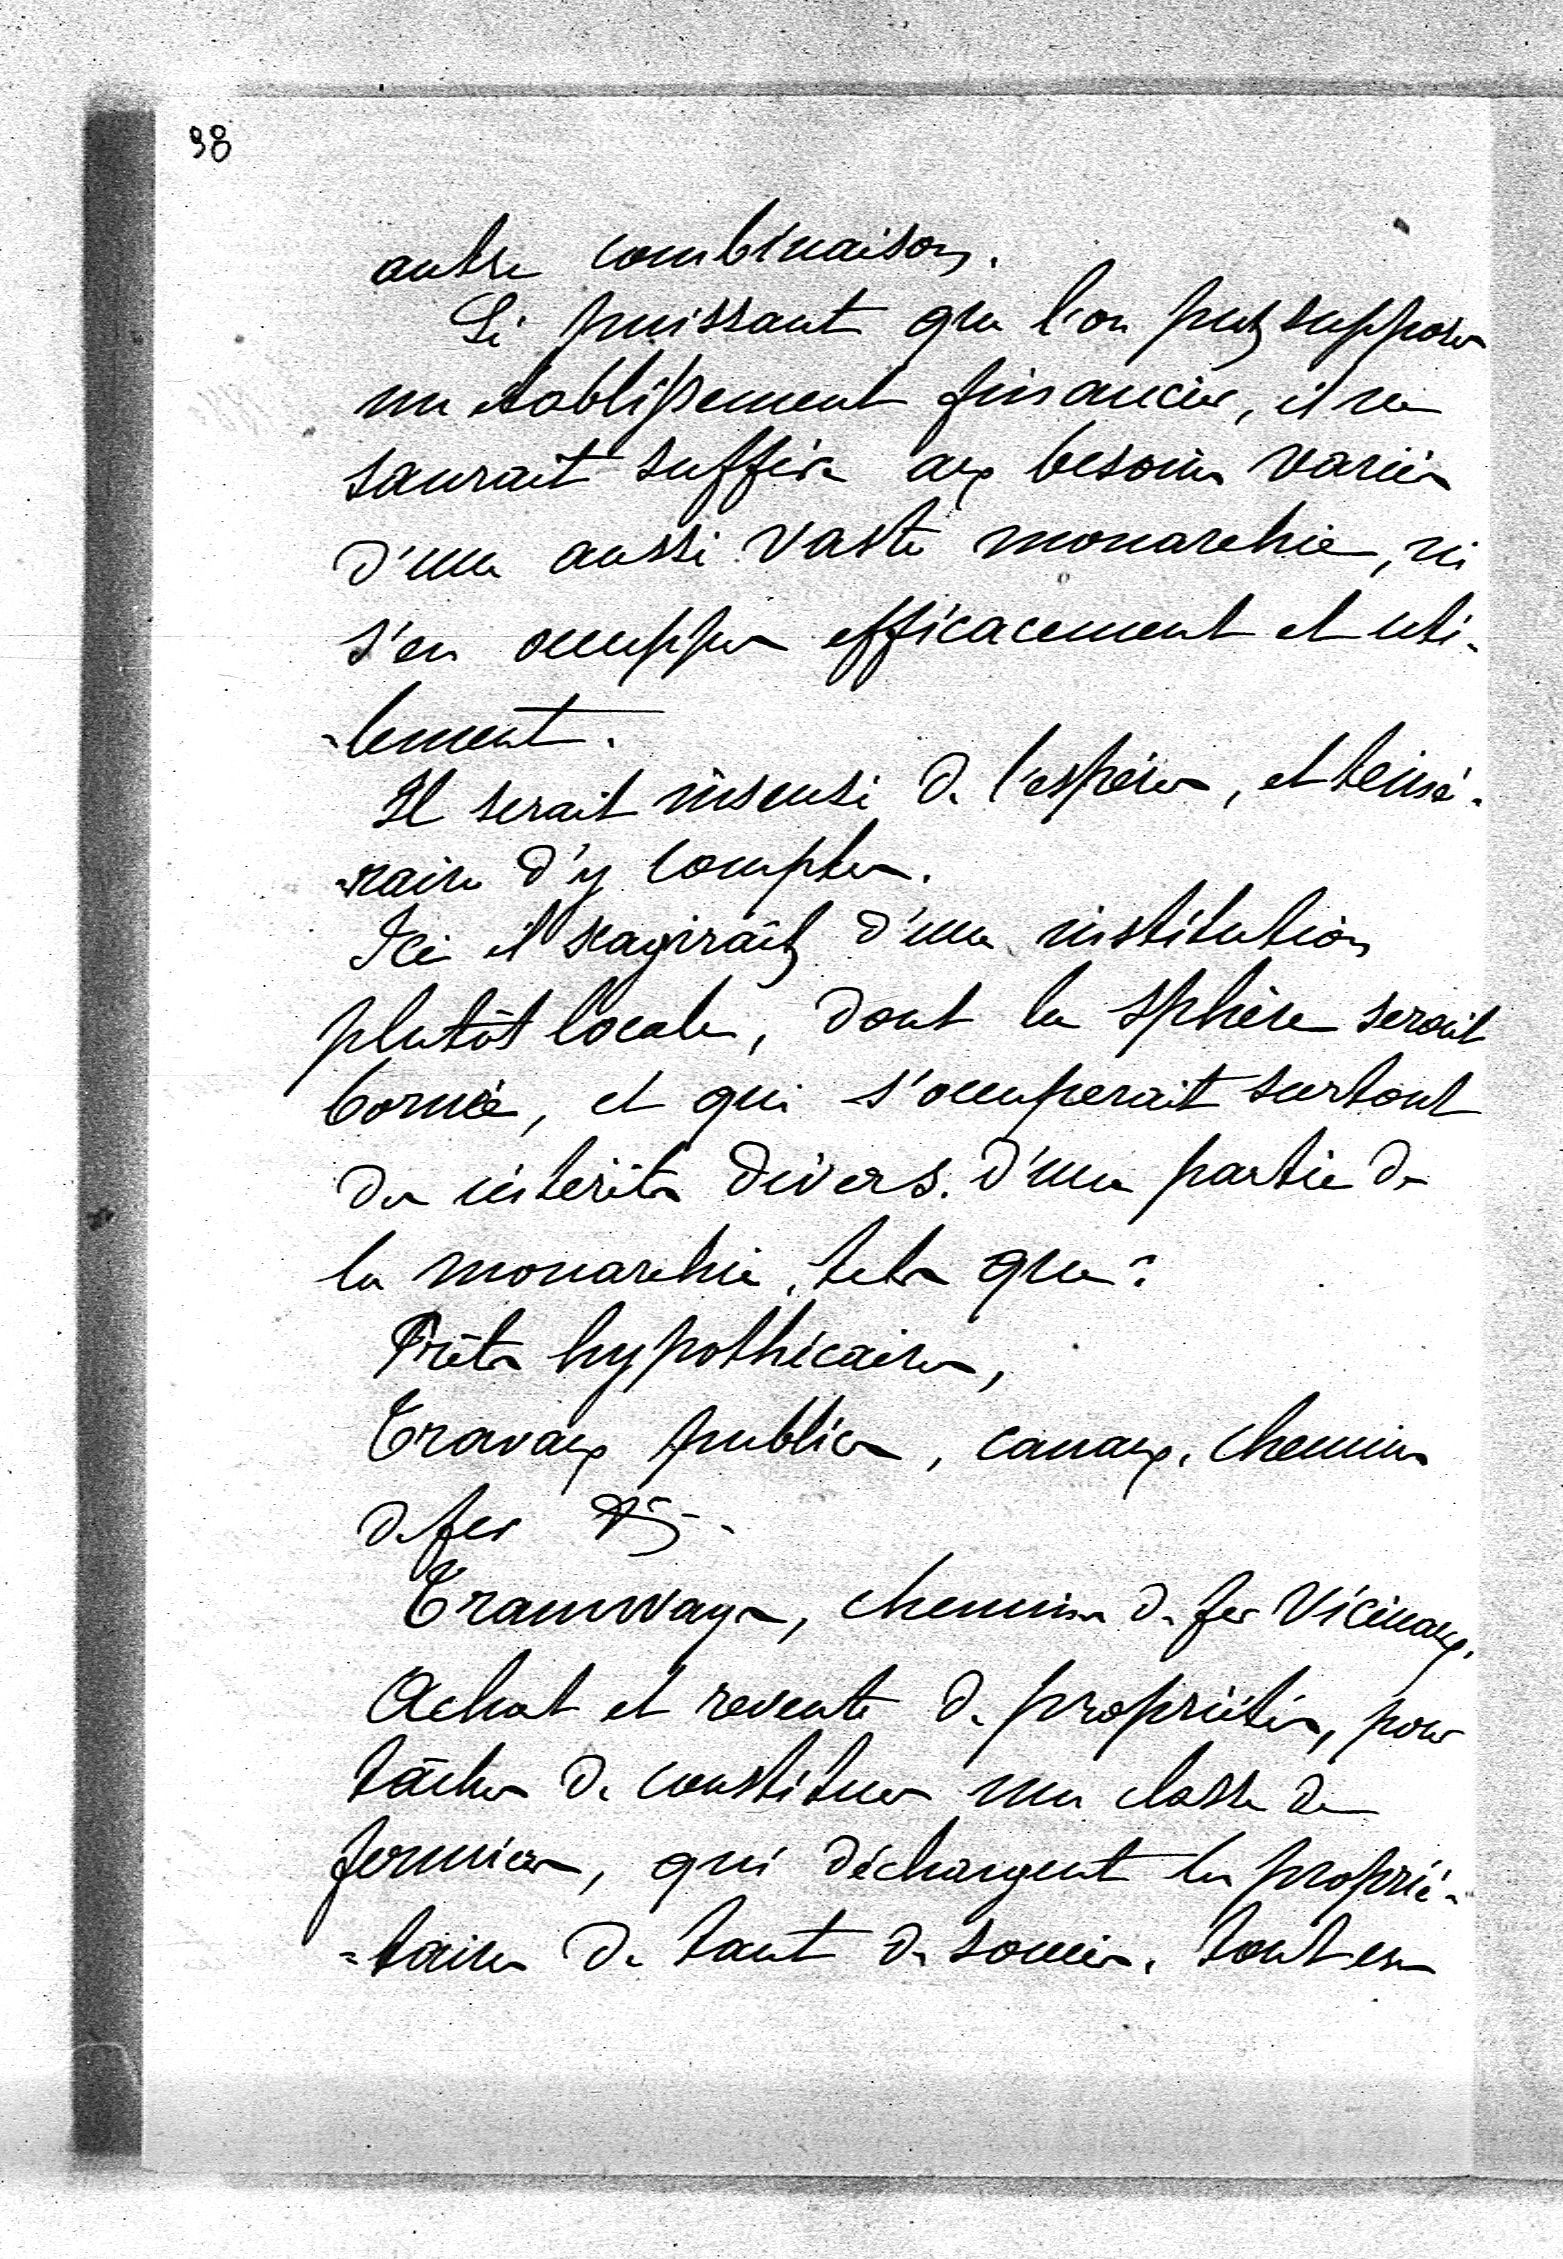 98
autre combinaison.
Si puissant que l'on put supposer
un établissement financier, il ne
saurait suffire aux besoins variés
d'une aussi vaste monarchie, ni
s'en occupper efficacement et uti-
-lement.
Il serait insensé de l'espérer, et témé-
-raire d'y compter.
Ici il s'agirait d'une institution
plutôt locale, dont la sphère serait
bornée, et qui s'occuperait surtout
des intérêts divers d'une partie de
la monarchie, tels que:
Prêts hypothécaires,
Travaux publics, canaux, chemins
de fer
Tramways, chemins de fer vicinaux.
Achat et revente de propriétés, pour
tâcher de constituer une classe de
fermiers, qui déchargent les proprié-
-taires de tant de soucis, tout en